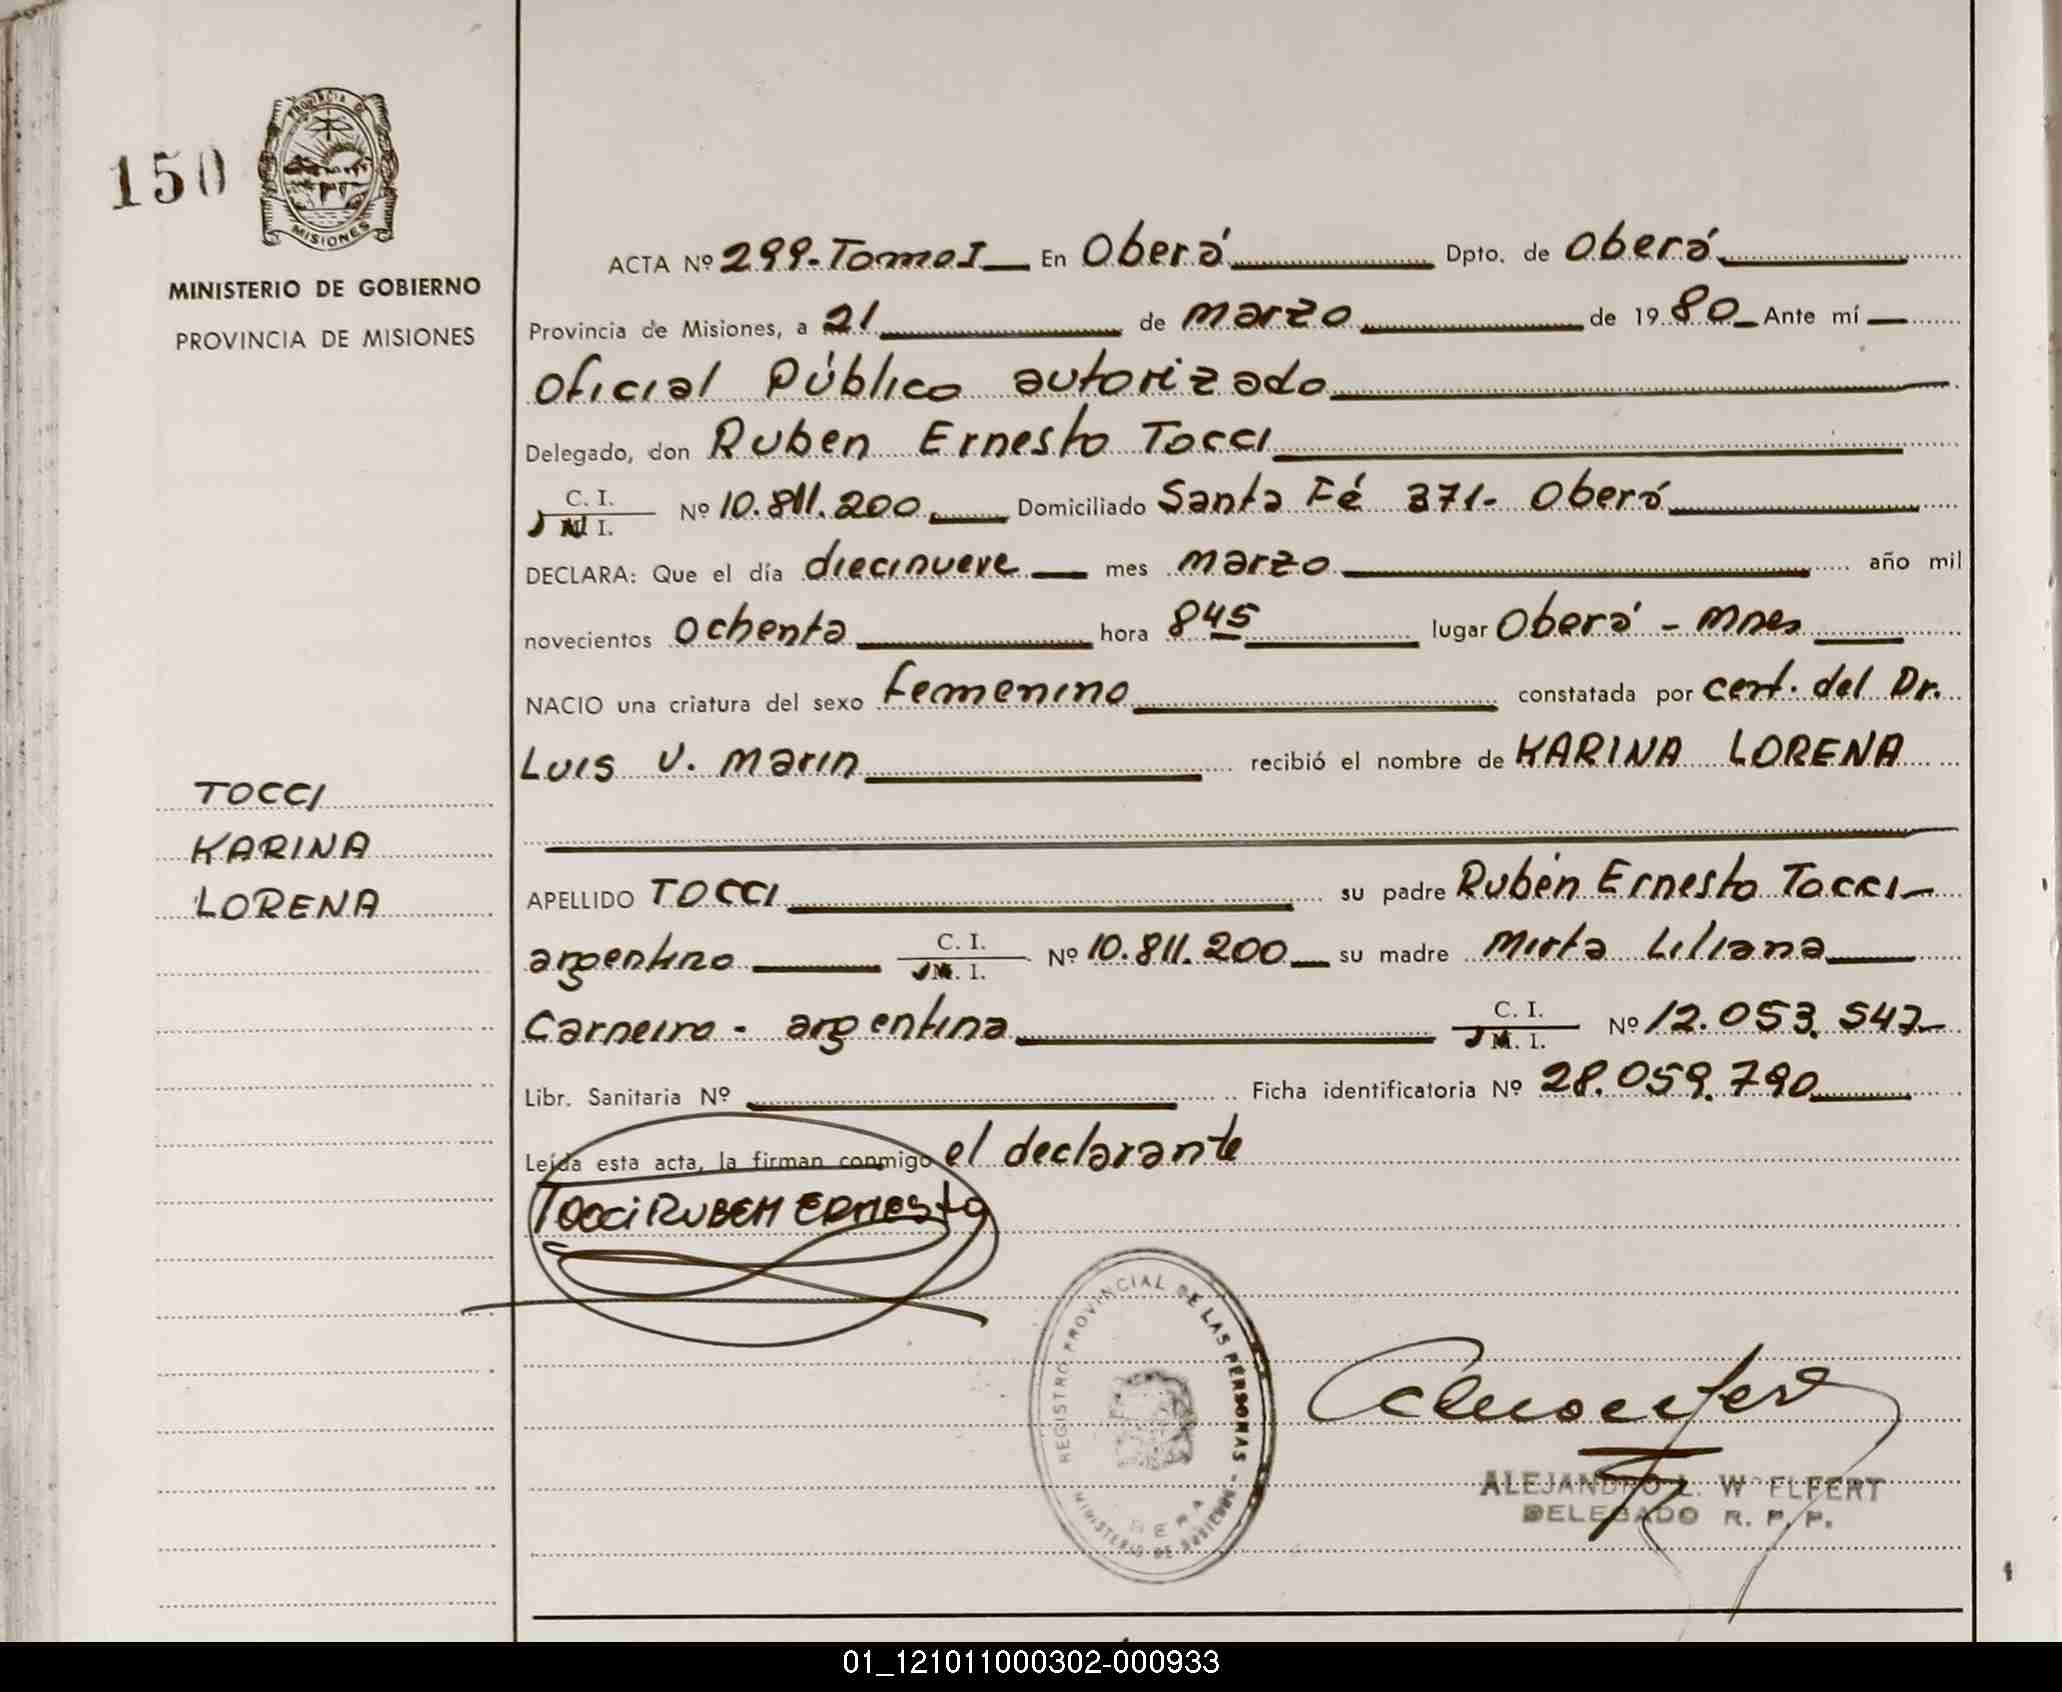 150
PROVINCIA DE
MISIONES
MINISTERIO DE GOBIERNO
PROVINCIA DE MISIONES
TOCCI
KARINA
LORENA
ACTA Nº 299-Tomo I En Oberá Dpto. de Oberá
Provincia de Misiones, a 21 de marzo de 1980 Ante mí
Oficial Público autorizado
Delegado, don Ruben Ernesto Tocci
C. I.
Nº 10.811.200 Domiciliado Santa Fé 371- Oberá
DECLARA: Que el día diecinueve mes marzo año mil
novecientos ochenta hora 845 lugar Oberá - Mnes
NACIO una criatura del sexo femenino constatada por cert. del Dr.
Luis V. Marin recibió el nombre de KARINA LORENA
APELLIDO TOCCI su padre Rubén Ernesto Tocci
argentino C. I. M. I. Nº 10.811.200 su madre Mirta Liliana
Carneiro - argentina C. I. M. I. Nº 12.053.547
Libr. Sanitaria Nº Ficha identificatoria Nº 28.059.790
Leída esta acta, la firman conmigo el declarante
TOCCI RUBEN ERNESTO
REGISTRO PROVINCIAL DE LAS PERSONAS -
MINISTERIO DE GOBIERNO
ALEJANDRO L. W ELFERT
DELEGADO R. P. P.
01_121011000302-000933